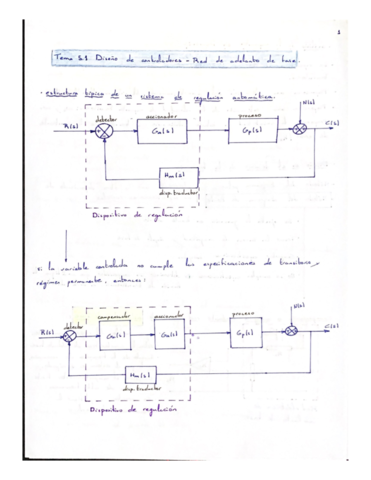 1
Tema 5.1 Diseño de controladores - Red de adelanto de fase.
· estructura típica de un sistema de regulación automática.
N(s)
detector accionador proceso
R(s) Ga(s) Gp(s) C(s)
Hm(s)
disp. traductor
Dispositivo de regulación
si la variable controlada no cumple las especificaciones de transitorio y
régimen permanente, entonces:
N(s)
compensador accionador proceso
R(s) detector Gc(s) Ga(s) Gp(s) C(s)
Hm(s)
disp. traductor
Dispositivo de regulación